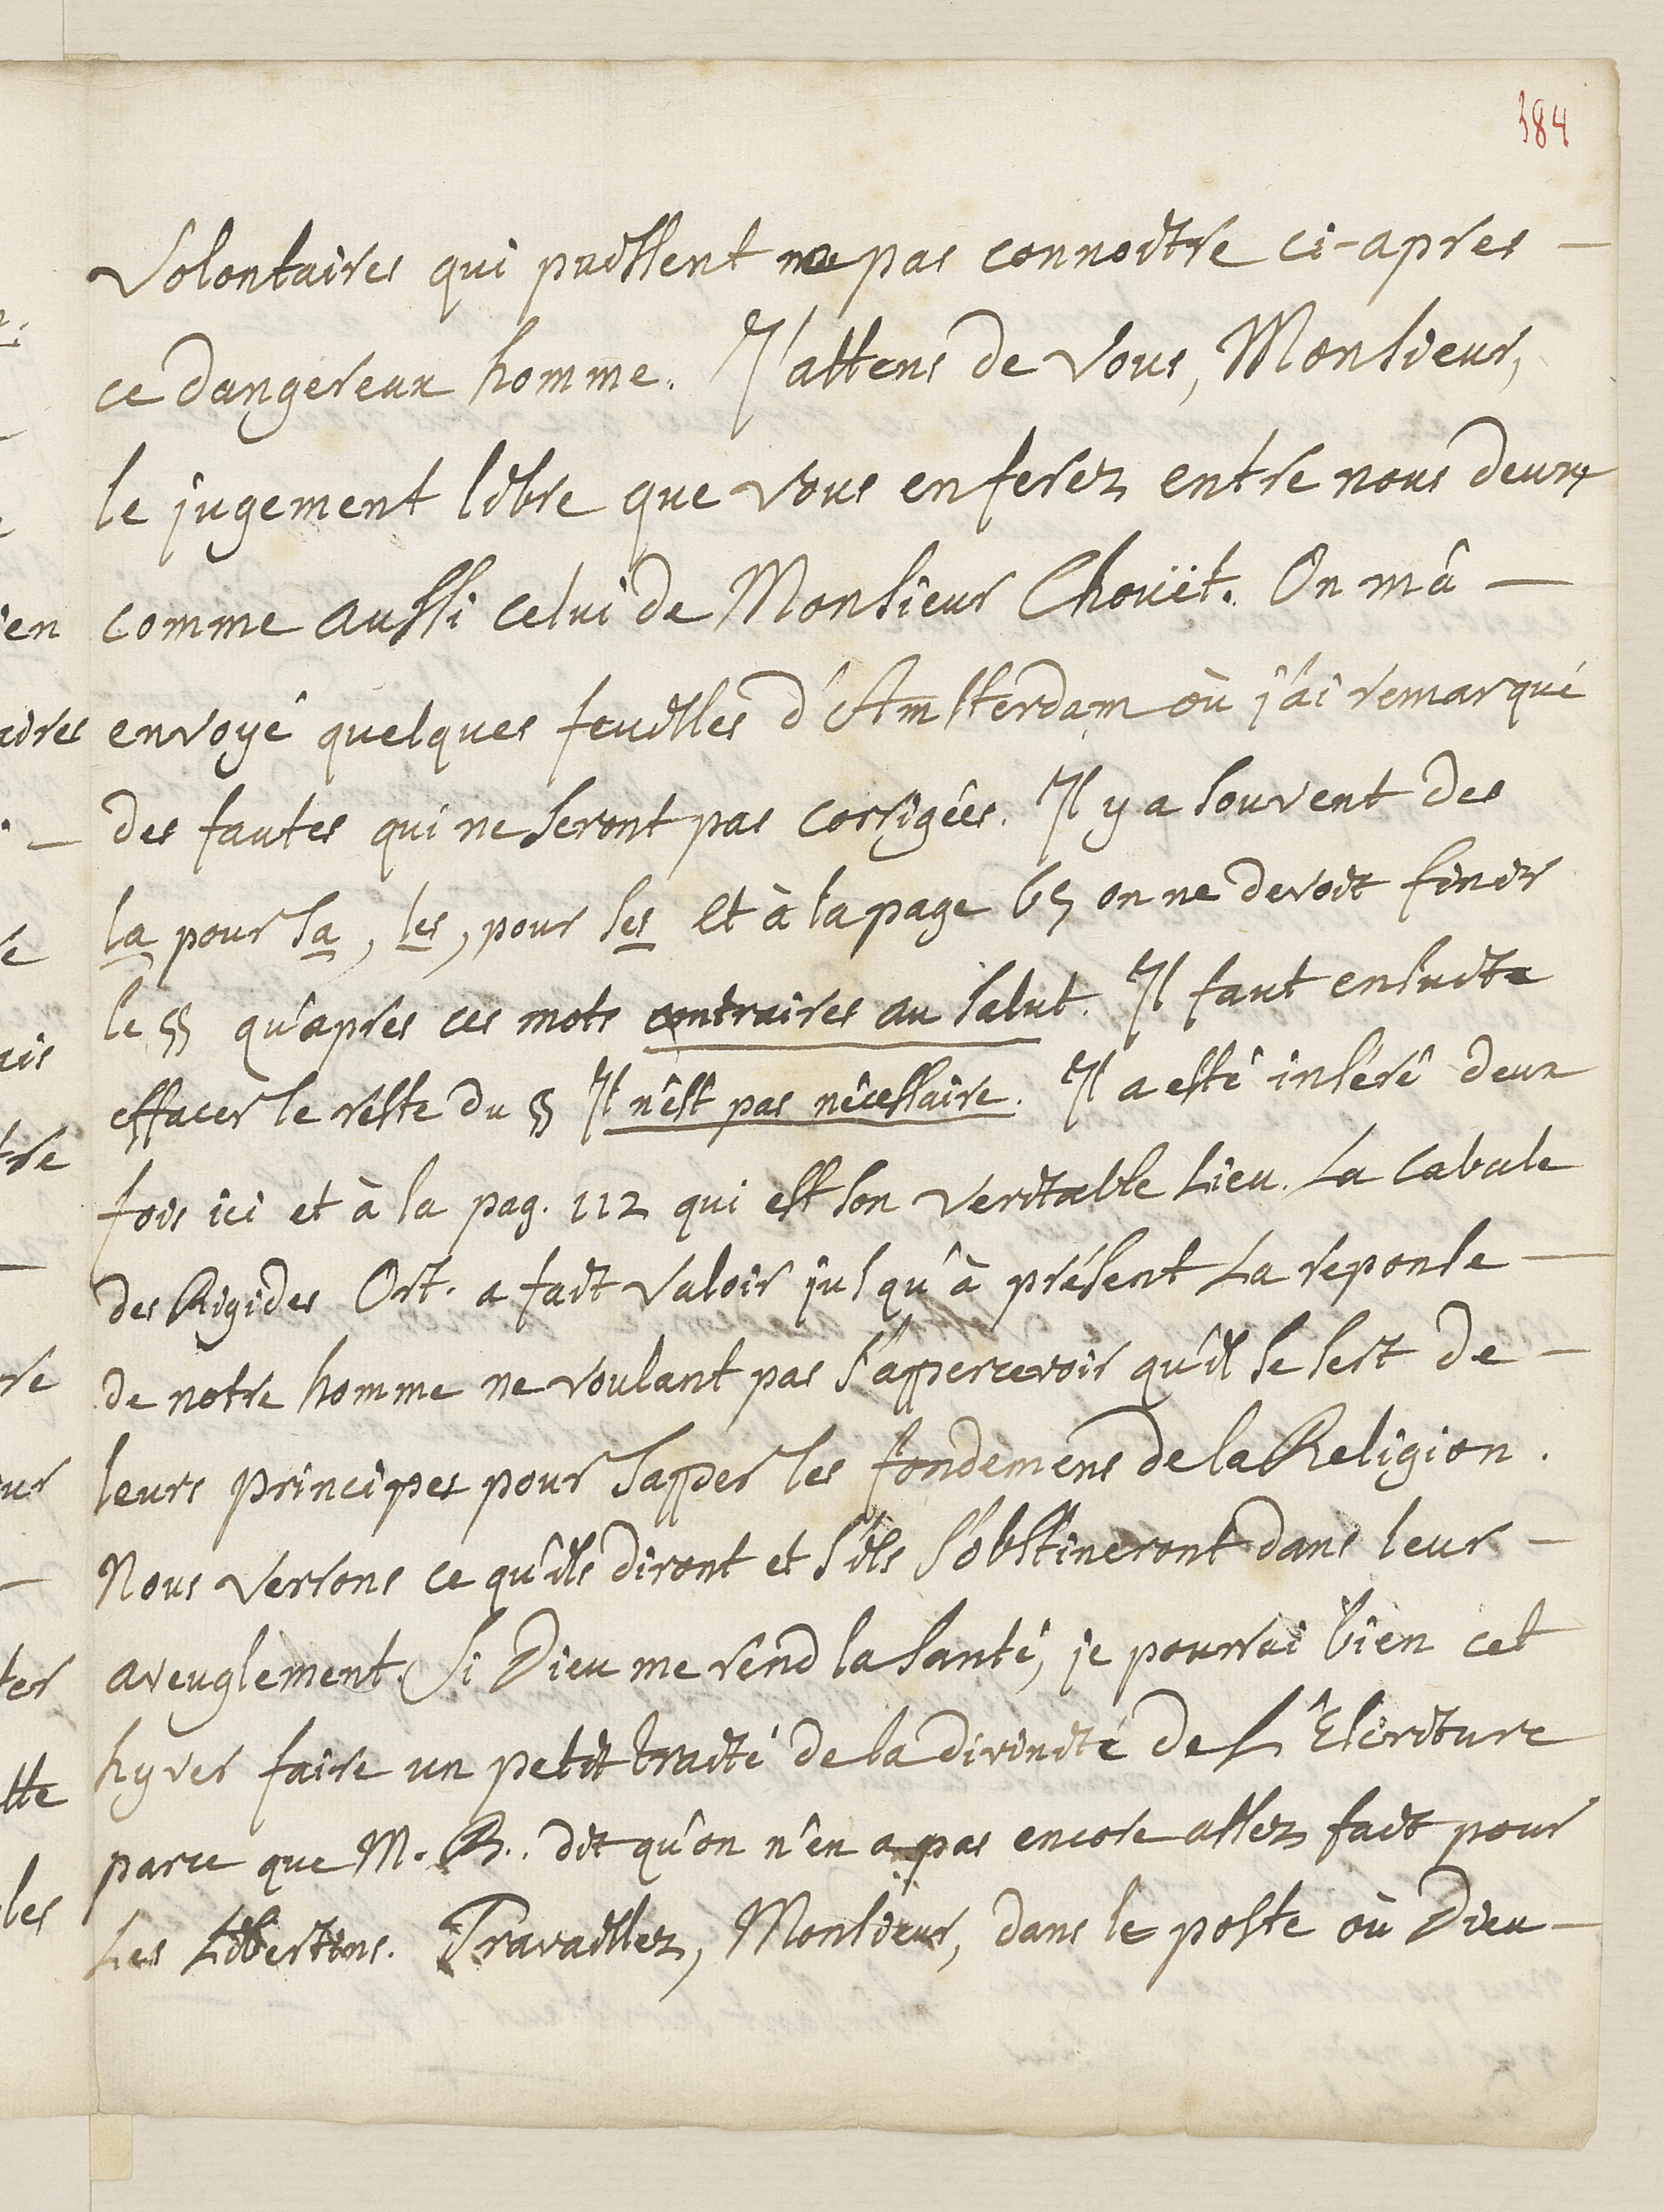 184
Volontaires qui puissent ne pas connoitre ci-apres –
ce dangereux homme. J'attens de vous, Monsieur,
le jugement libre que vous en ferez entre nous deux
comme aussi celui de Monsieur Chouët. On m'a –
envoyé quelques feuilles d'Amsterdam où j'ai remarqué
des fautes qui ne seront pas corrigées. Il y a souvent des
la pour sa, les, pour ses et à la page 65 on ne devoit finir
le § qu'apres ces mots contraires au salut. Il faut ensuite
effacer le reste du § Il n'est pas nécessaire. Il a esté inséré deux
fois ici et à la pag. 112 qui est son veritable Lieu. La cabale
des Rigides Ort. a fait valoir jusqu'à présent La reponse –
de notre homme ne voulant pas s'appercevoir qu'il se sert de –
leurs principes pour sapper les fondemens de la Religion.
Nous verrons ce qu'ils diront et s'ils s'obstineront dans leur –
aveuglement. Si Dieu me rend la santé, je pourrai bien cet
hyver faire un petit traité de la divinité de L'Escriture
parce que M. B.. dit qu'on n'en a pas encore assez fait pour
Les Libertins. Travaillez, Monsieur, dans le poste où Dieu –